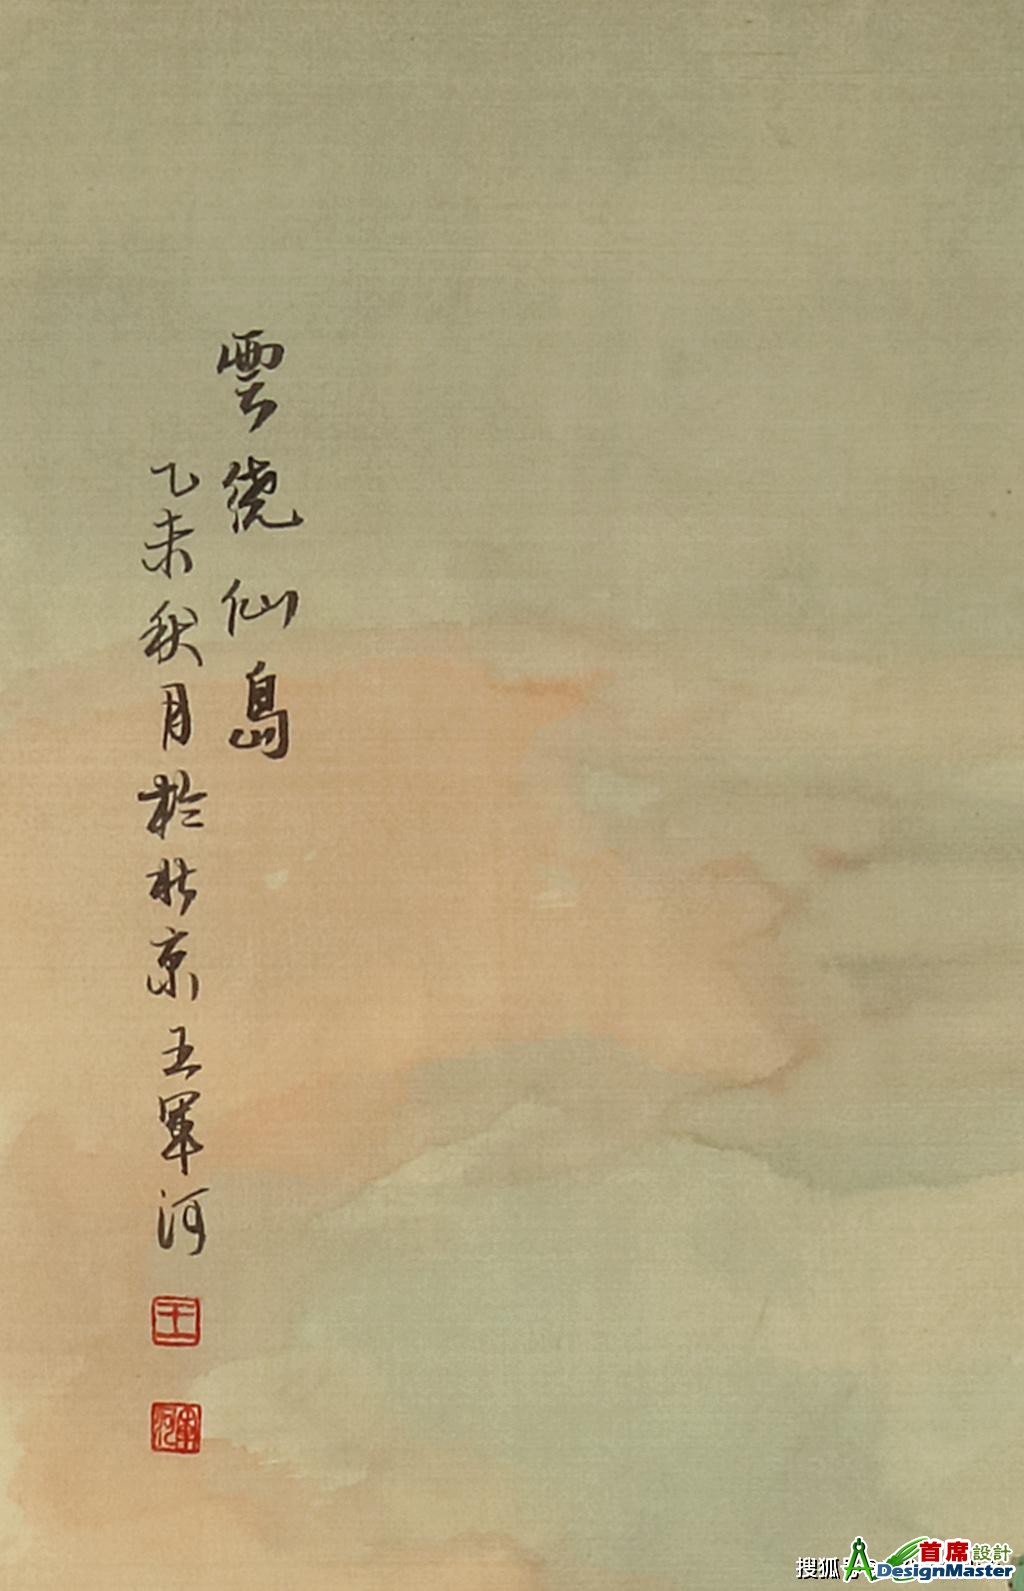 雲繞仙島
乙未秋月於北京王軍河
王
軍河
搜狐号
首席設計
DesignMaster